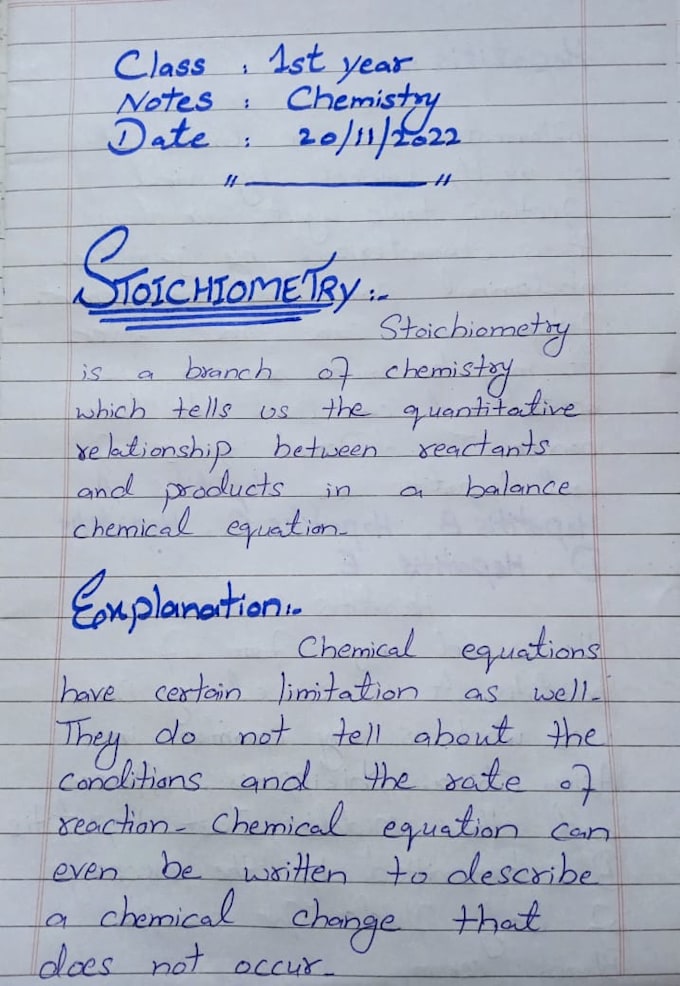 Class : 1st year
Notes : Chemistry
Date : 20/11/2022
STOICHIOMETRY:-
Stoichiometry
is a branch of chemistry
which tells us the quantitative
relationship between reactants
and products in a balance
chemical equation.
Explanation:-
Chemical equations
have certain limitation as well.
They do not tell about the
conditions and the rate of
reaction. Chemical equation can
even be written to describe
a chemical change that
does not occur.